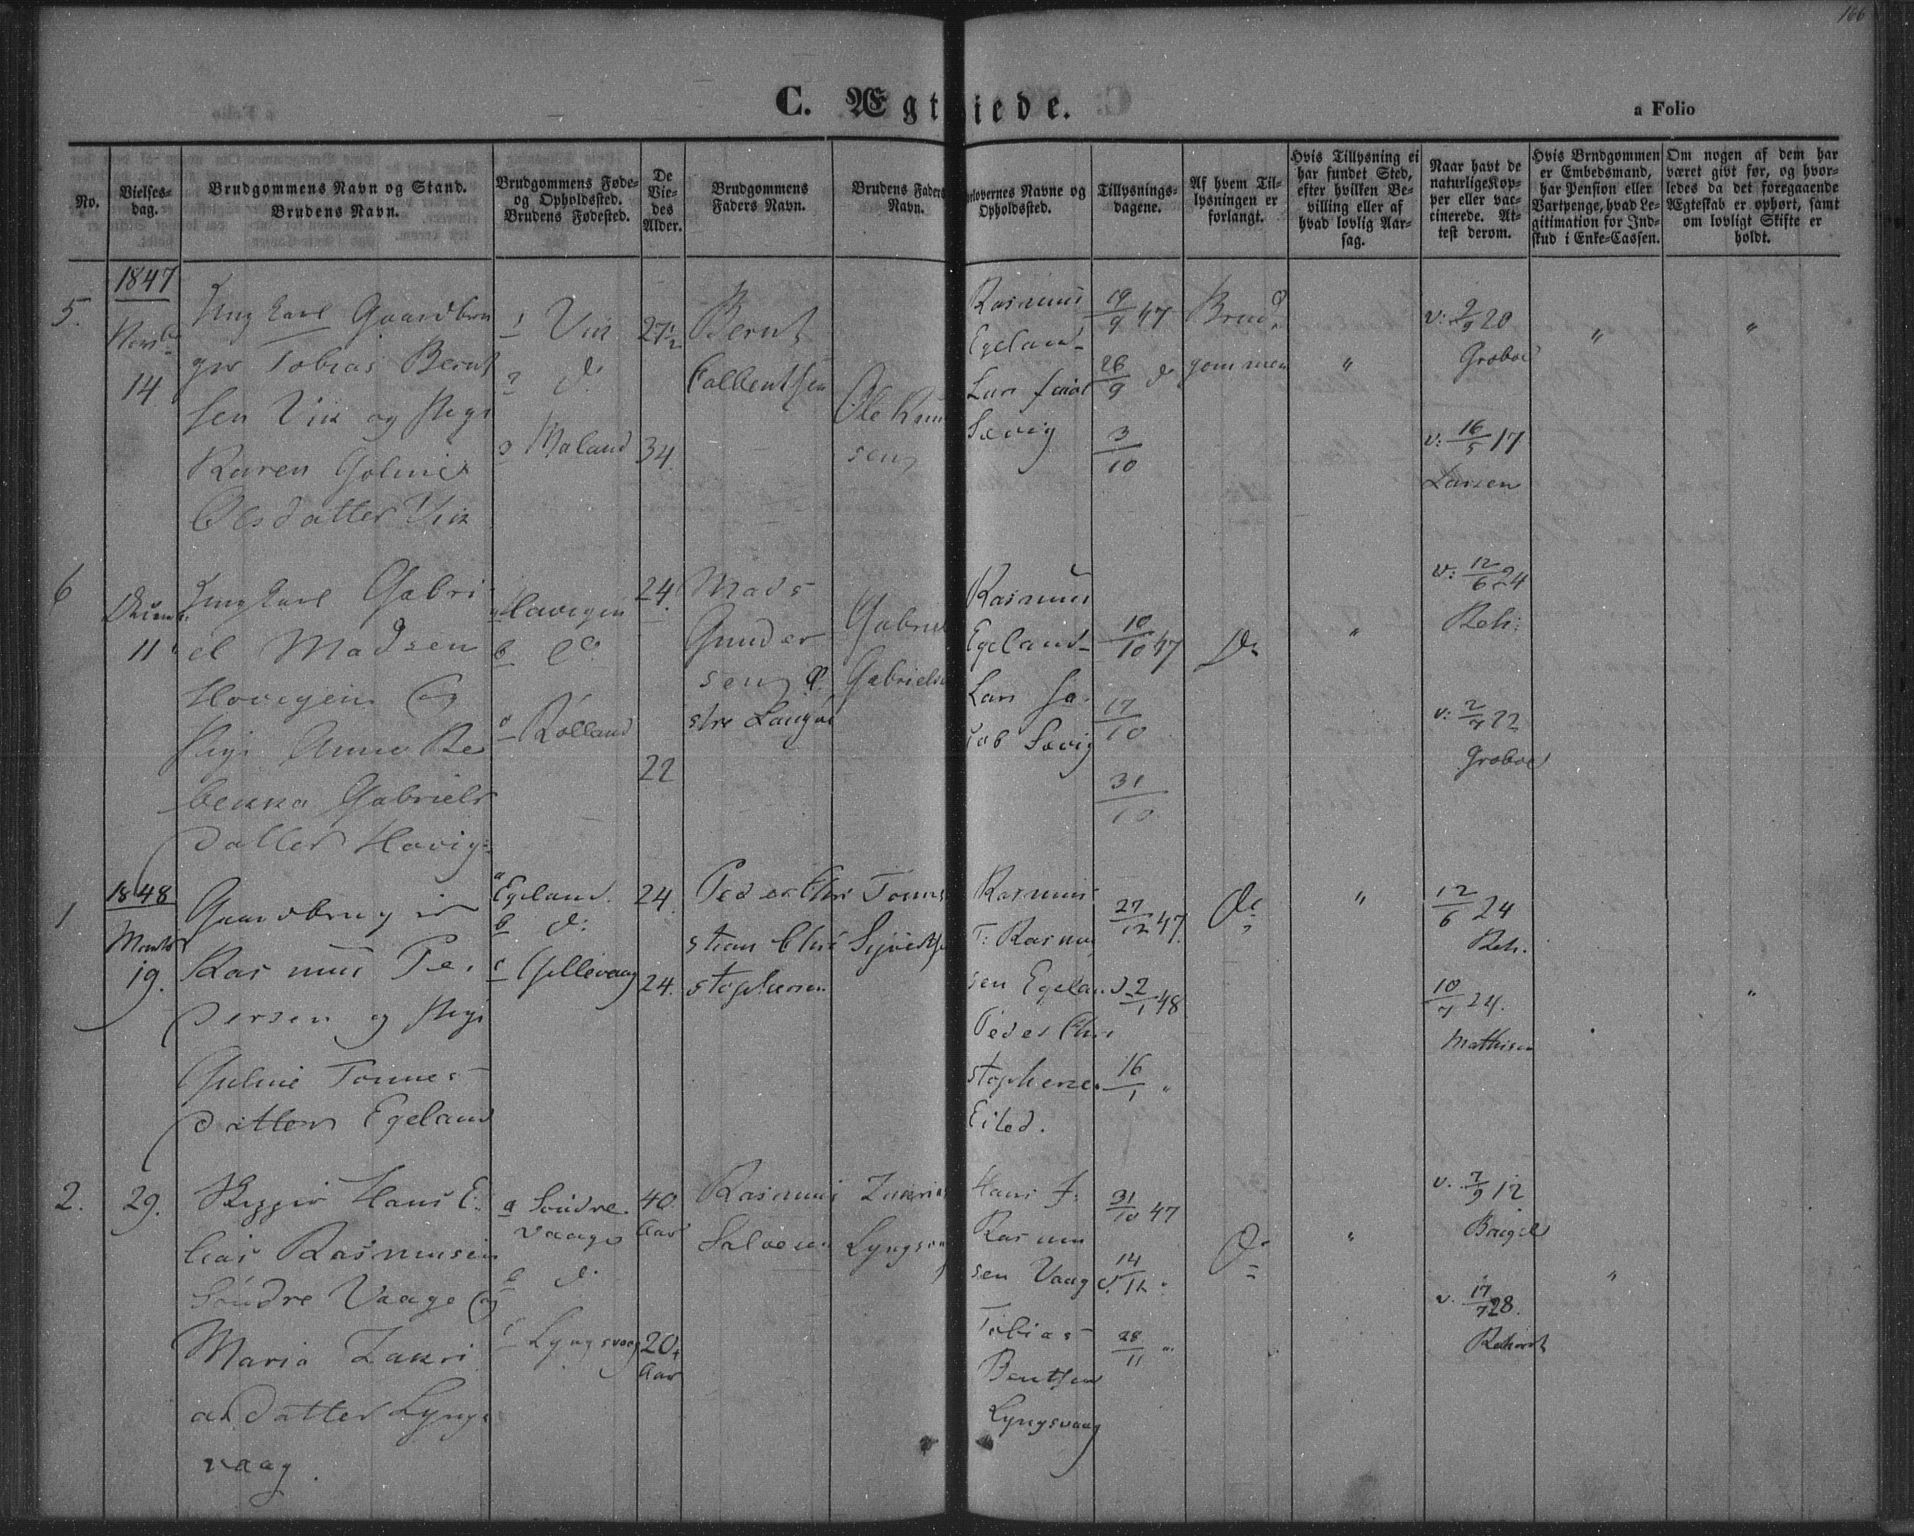 166
C. Ægteviede.
a Folio
No.
Vielses-
dag.
Brudgommens Navn og Stand.
Brudens Navn.
Brudgommens Føde-
og Opholdssted.
Brudens Fødested.
De
Vie-
des
Alder.
Brudgommens
Faders Navn.
Brudens Faders
Navn.
Forlovernes Navne og
Opholdssted.
Tillysnings-
dagene.
Af hvem Til-
lysningen er
forlangt.
Hvis Tillysning ei
har fundet Sted,
efter hvilken Be-
villing eller af
hvad lovlig Aar-
sag.
Naar havt de
naturlige Kop-
per eller vac-
cinerede. At-
test derom.
Hvis Brudgommen
er Embedsmand,
har Pension eller
Vartpenge, hvad Le-
gitimation for Ind-
skud i Enke-Cassen.
Om nogen af dem har
været givt før, og hvor-
ledes da det foregaaende
Ægteskab er ophørt, samt
om lovligt Skifte er
holdt.
1847
5.
14
Ungkarl Gaardbru
ger Tobias Bernt
sen Vik og Pige
Karen Goline
Olsdatter Vik
Vik
d°
Moland
27½
34
Bernt
Ole Knud
sen
Rasmus
Egeland
Lars
Sævig
19/9 47
26/9 d°
3/10
Brud
gommen
"
v: 2/9 20
Groboe
v: 16/5 17
Larsen
"
"
6
11
Ungkarl Gabri
el Madsen
Hovegen og
Pige Anne Re
bekka Gabriels
datter Hovig
a Hovegen
b d°
c Rolland
24.
22
Mads
Gunder
sen
Gabriel
Gabriels
Rasmus
Egeland
Lars Ja
cob Sævig
10/10 47
17/10
31/10
D°
"
v: 12/6 24
Reh:
v: 2/7 22
Groboe
1848
1
Marts
19.
Gaardbruger
Rasmus Pe
dersen og Pige
Guline Tonnes
datter Egeland
a Egeland.
b d:
24.
24.
Peder Chri
stian Chri
stophersen
Tonnes
Rasmus
T: Rasmus
sen Egeland
Peder Chri
stophersen
Eiled.
27/12 47.
2/1 48
16/1 "
D°
"
12/6 24
Reh.
10/7 24.
Mathisen
"
2.
29.
Skipper Hans E
lias Rasmusen
Søndre Vaage og
Maria Zakri
asdatter Lyngs
vaag.
a Søndre
Vaage
b d°
c Lyngsvaag
40
Aar
20.
Aar
Rasmus
Salvesen
Zakrias
Lyngsvaag
Hans F:
Rasmus
sen Vaag
Tobias
Bentsen
Lyngsvaag
31/10 47
14/11 "
28/11 "
D°
"
v. 7/9 12
v. 17/7 28.
"